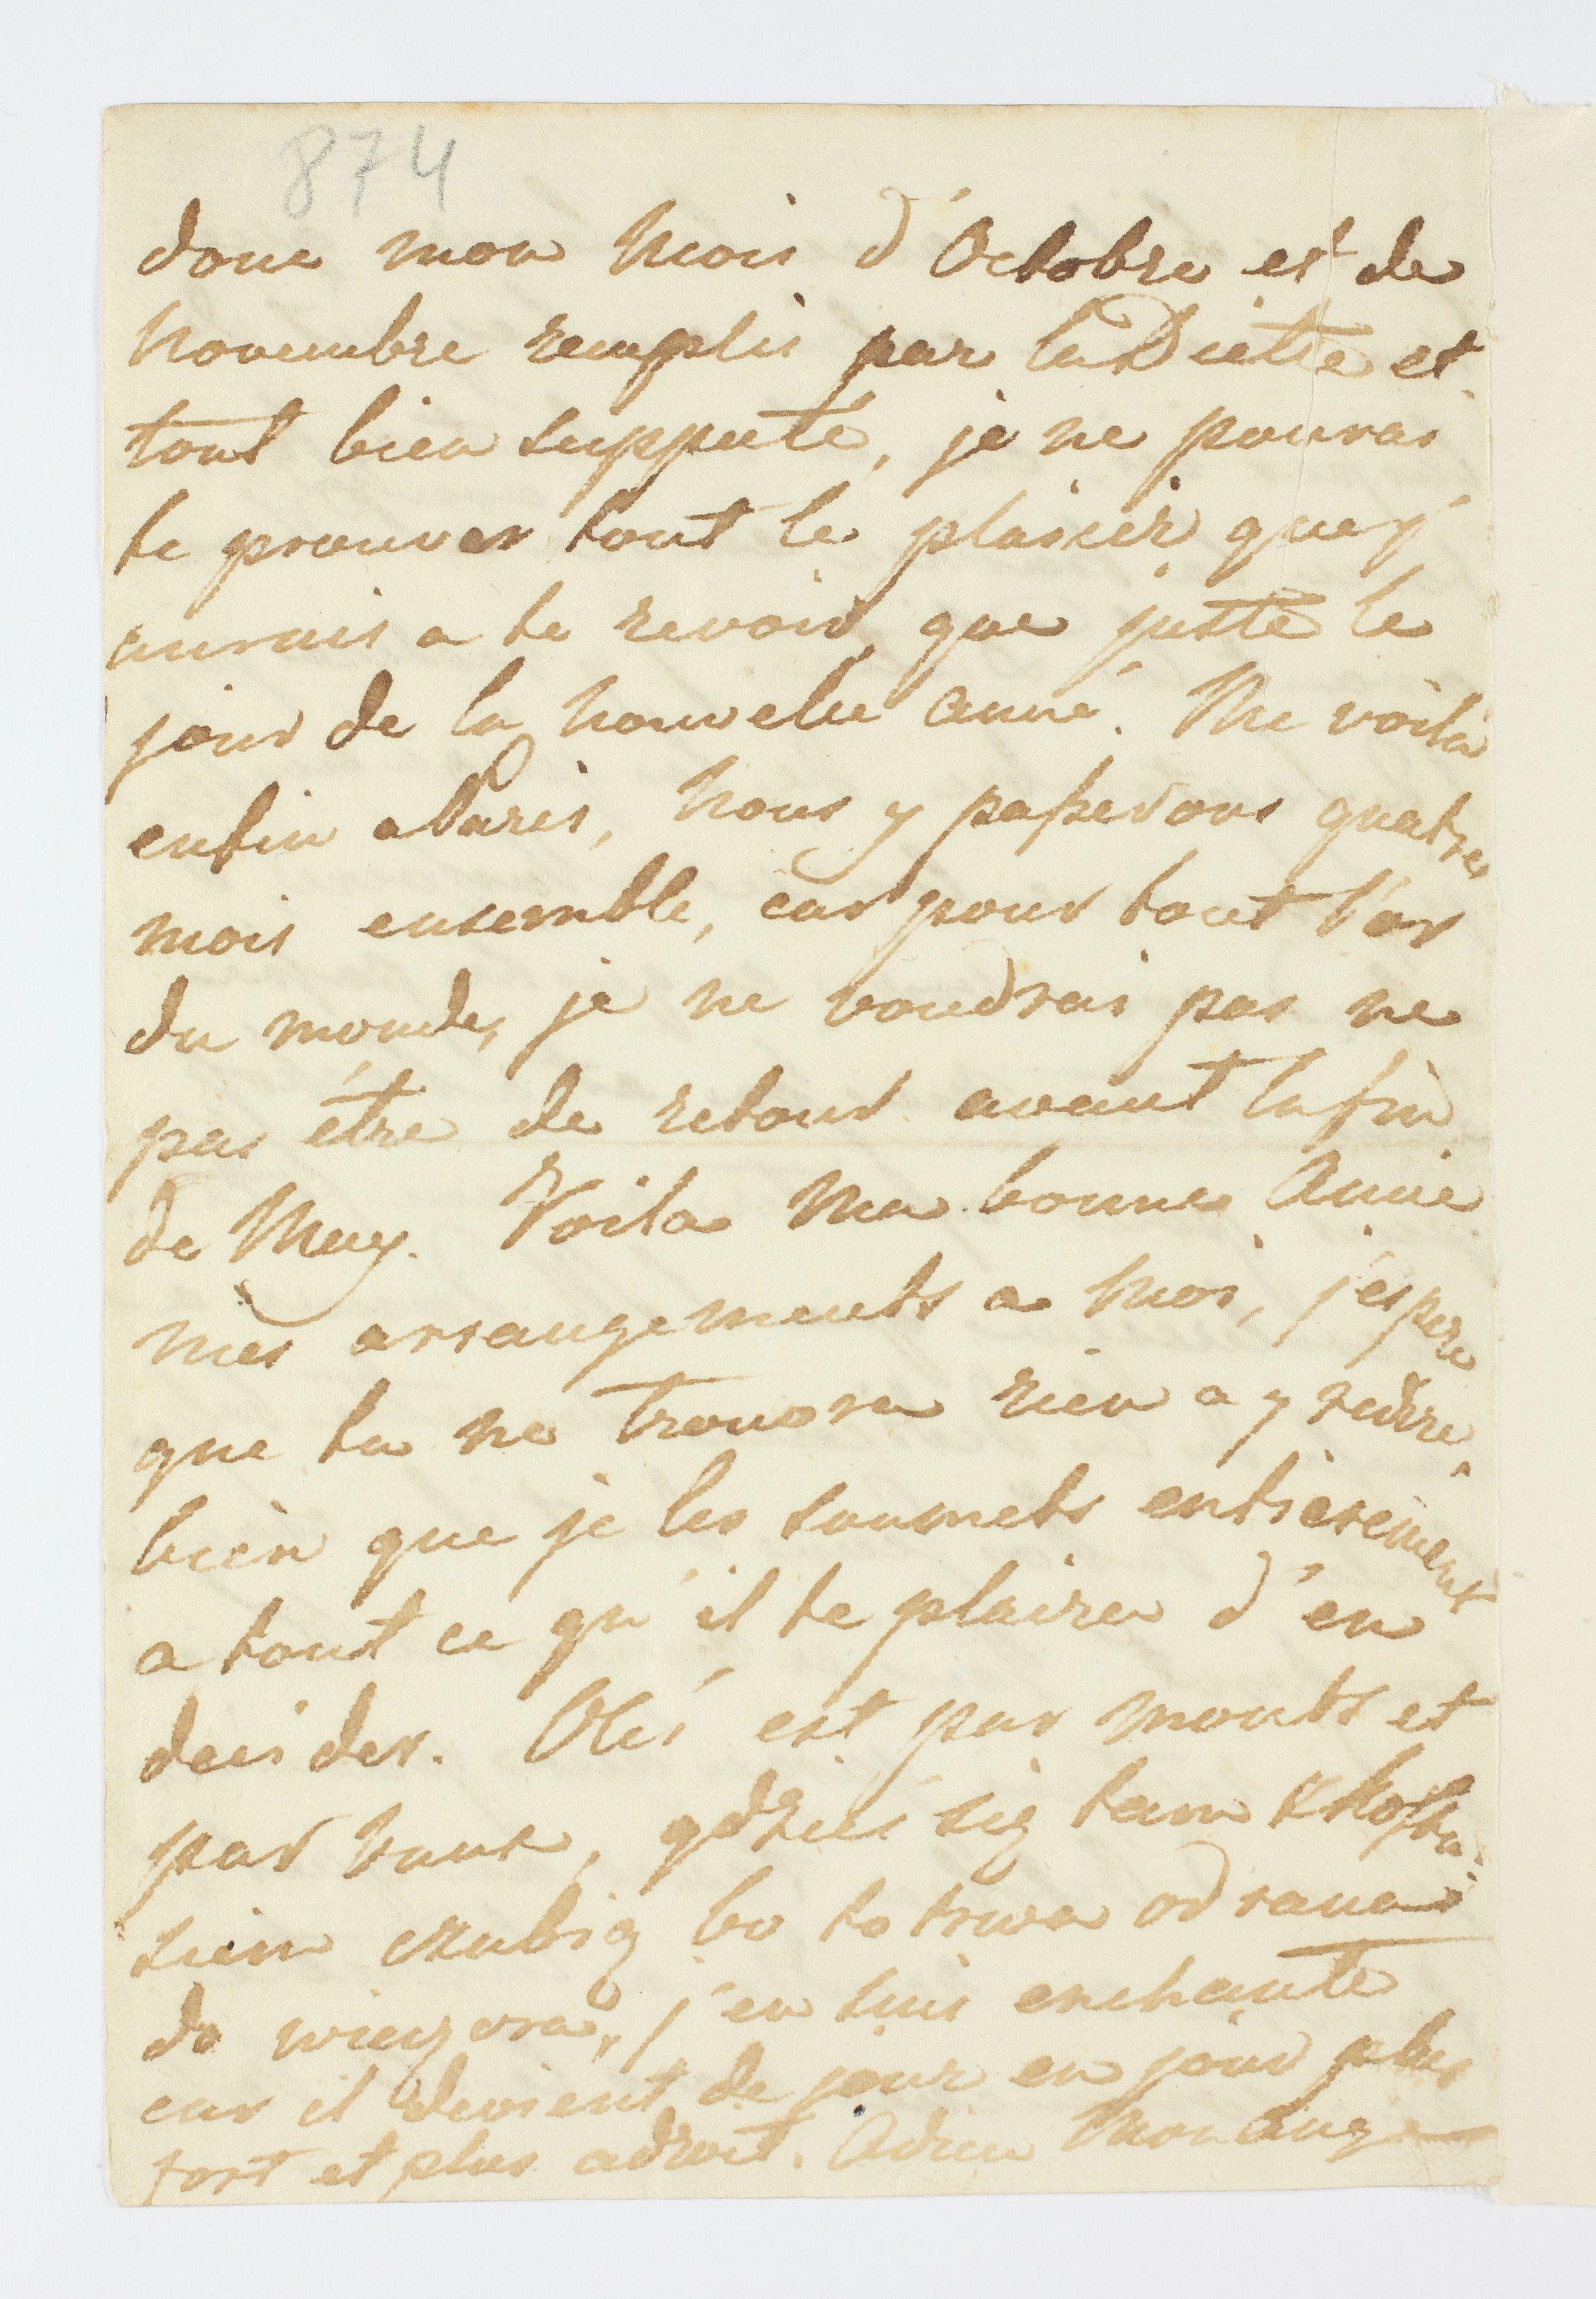 874
donc mon Mois d'Octobre et de
Novembre remplis par la Diette et
tout bien supputé, je ne pourai
te prouver tout le plaisir que j'
aurais a te revoir, que juste le
jour de la nouvelle anné. Me voila
enfin a Paris, nous y passerons quatre
mois ensemble, car pour tout l'or
du monde, je ne voudrais pas ne
pas être de retour avant la fin
de May. Voila Ma bonne Amie
mes arrangements a Moi, j'espere
que tu ne trouvera rien a y redire,
bien que je les soumets entierement
a tout ce qu'il te plaira d'en
decider. Oleś est par monts et
par vaux, gdzieś się tam z
siem czubią bo to trwa od rana
do wieczora, j'en suis enchanté
car il devient de jour en jour plus
fort et plus adroit. Adieu Mon Ange